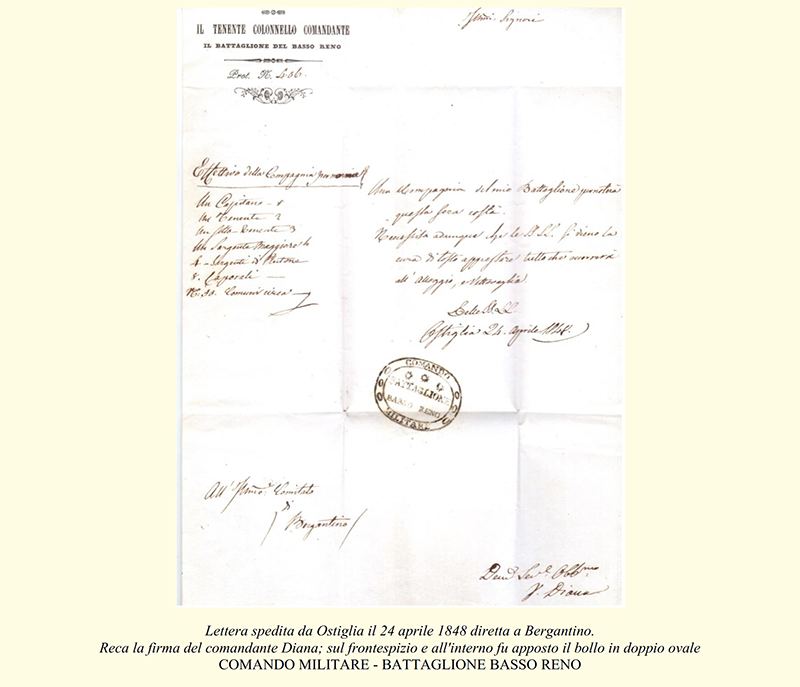 IL TENENTE COLONNELLO COMANDANTE
IL BATTAGLIONE DEL BASSO RENO
Prot. N. 436.
Signori
Effettivo della Compagnia
Un Capitano - 1
Un Tenente 2
Un Sotto-Tenente 3
Un Sergente Maggiore 4
4 - Sergenti di Plutone
8. Caporali —
N. 80. Comuni circa —
Una Compagnia del mio Battaglione
questa sera costà.
Necessita adunque che le S.S. LL. si dieno la
cura di tosto apprestare tutto che occorrerà
all'Alloggio, e Vettovaglia
Delle S.S. LL.
Ostiglia 24. Aprile 1848.
COMANDO
BATTAGLIONE
BASSO RENO
MILITARE
All' Comitato
di
Bergantino
Dev. Ser. Obb.mo
Diana
Lettera spedita da Ostiglia il 24 aprile 1848 diretta a Bergantino.
Reca la firma del comandante Diana; sul frontespizio e all'interno fu apposto il bollo in doppio ovale
COMANDO MILITARE - BATTAGLIONE BASSO RENO